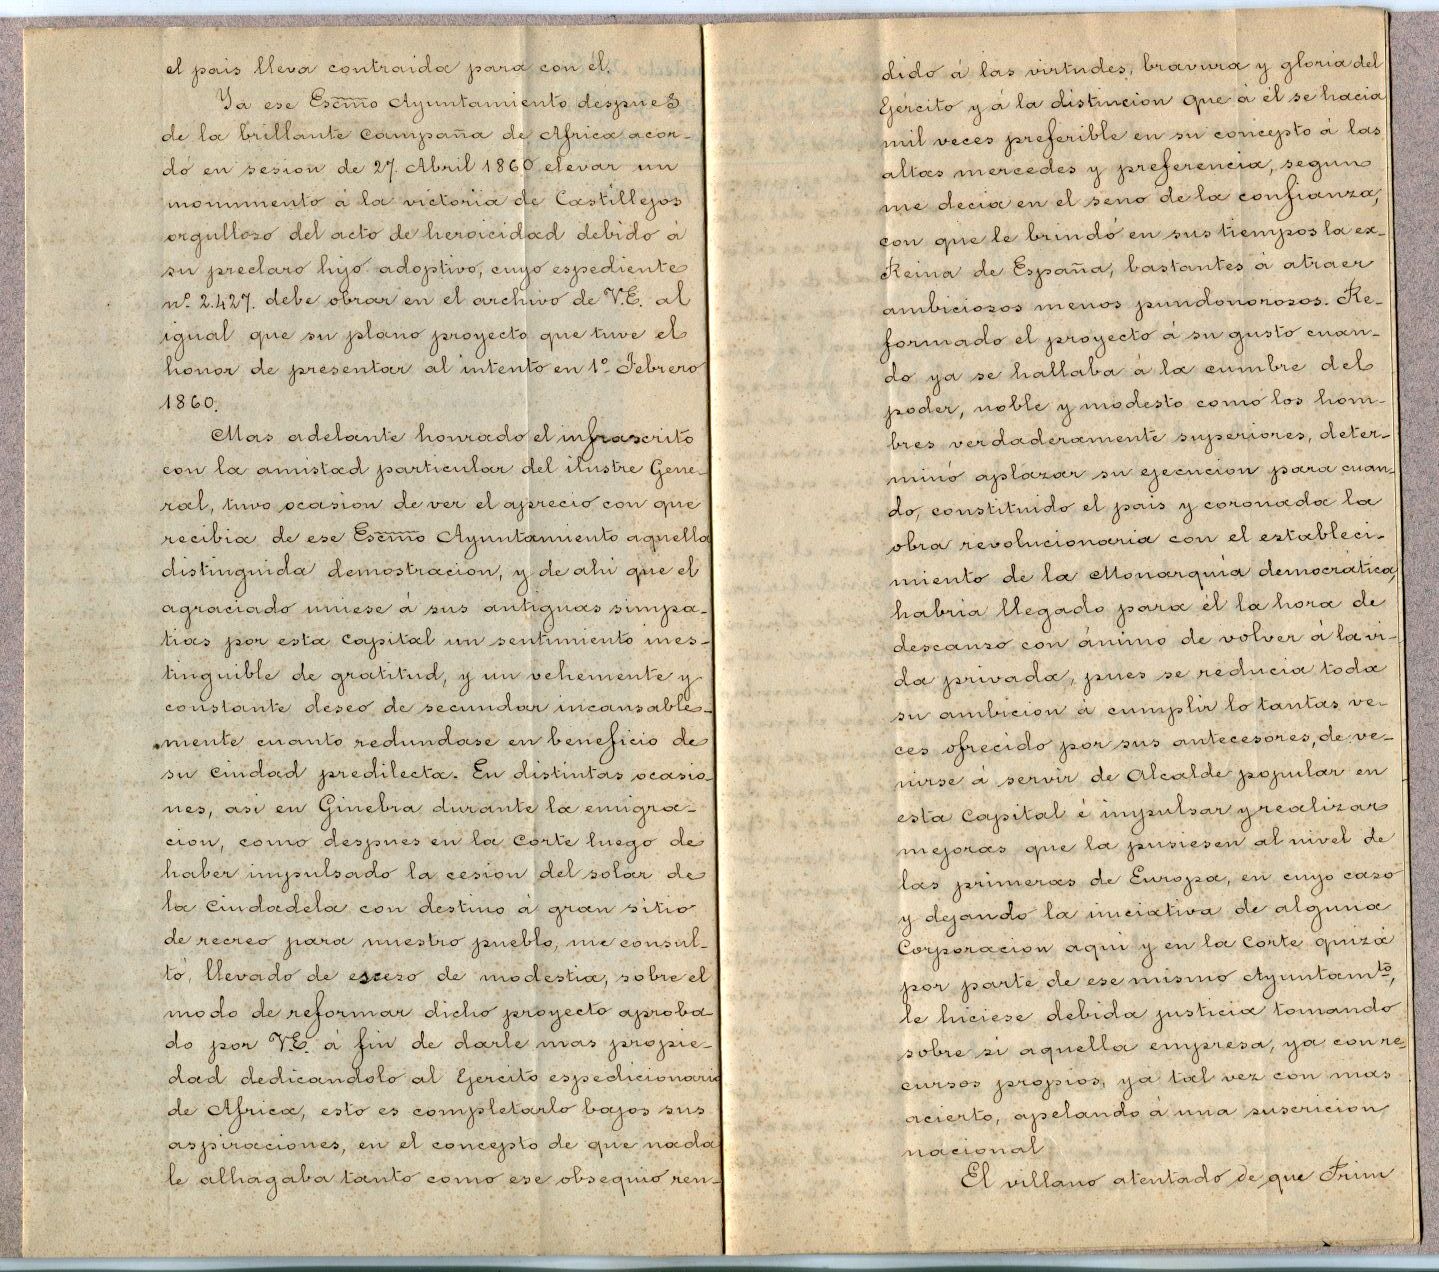 el pais lleva contraida para con él.
Ya ese Escmo Ayuntamiento despues
de la brillante campaña de Africa acor-
dó en sesion de 27. Abril 1860 elevar un
monumento á la victoria de Castillejos
orgulloso del acto de heroicidad debido á
su preclaro hijo adoptivo, cuyo espediente
nº 2.427. debe obrar en el archivo de V.E. al
igual que su plano proyecto que tuve el
honor de presentar al intento en 1º Febrero
1860.
Mas adelante honrado el infrascrito
con la amistad particular del ilustre Gene-
ral, tuvo ocasion de ver el aprecio con que
recibia de ese Escmo Ayuntamiento aquella
distinguida demostracion, y de ahi que el
agraciado uniese á sus antiguas simpa-
tias por esta capital un sentimiento ines-
tinguible de gratitud, y un vehemente y
constante deseo de secundar incansable-
mente cuanto redundase en beneficio de
su ciudad predilecta. En distintas ocasio-
nes, asi en Ginebra durante la emigra-
cion, como despues en la Corte luego de
haber impulsado la cesion del solar de
la Ciudadela con destino á gran sitio
de recreo para nuestro pueblo, me consul-
tó, llevado de esceso de modestia, sobre el
modo de reformar dicho proyecto aproba-
do por V.E. á fin de darle mas propie-
dad dedicandolo al Ejercito espedicionario
de Africa, esto es completarlo bajos sus
aspiraciones, en el concepto de que nada
le alhagaba tanto como ese obsequio ren-
dido á las virtudes, bravura y gloria del
Ejército y á la distincion que á él se hacia
mil veces preferible en su concepto á las
altas mercedes y preferencia, segun
me decia en el seno de la confianza,
con que le brindó en sus tiempos la ex-
Reina de España, bastantes á atraer
ambiciosos menos pundonorosos. Re-
formado el proyecto á su gusto cuan-
do ya se hallaba á la cumbre del
poder, noble y modesto como los hom-
bres verdaderamente superiores, deter-
minó aplazar su ejecucion para cuan-
do, constituido el pais y coronada la
obra revolucionaria con el estableci-
miento de la Monarquia democrática,
habria llegado para él la hora de
descanso con ánimo de volver á la vi-
da privada, pues se reducia toda
su ambicion á cumplir lo tantas ve-
ces ofrecido por sus antecesores, de ve-
nirse á servir de Alcalde popular en
esta Capital é impulsar y realizar
mejoras que la pusiesen al nivel de
las primeras de Europa, en cuyo caso
y dejando la iniciativa de alguna
Corporacion aqui y en la Corte quizá
por parte de ese mismo Ayuntamto,
le hiciese debida justicia tomando
sobre si aquella empresa, ya con re-
cursos propios, ya tal vez con mas
acierto, apelando á una suscricion
nacional
El villano atentado de que Prim